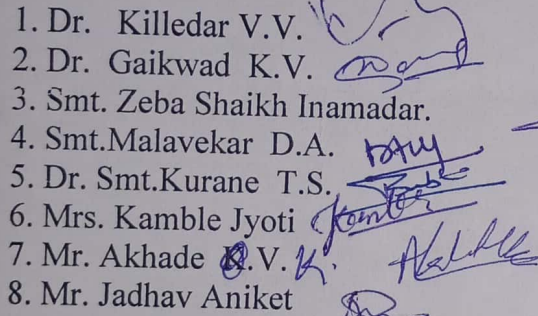 1. Dr. Killedar V.V.
2. Dr. Gaikwad K.V.
3. Smt. Zeba Shaikh Inamadar.
4. Smt.Malavekar D.A.
5. Dr. Smt.Kurane T.S.
6. Mrs. Kamble Jyoti
7. Mr. Akhade .V. K.
8. Mr. Jadhav Aniket